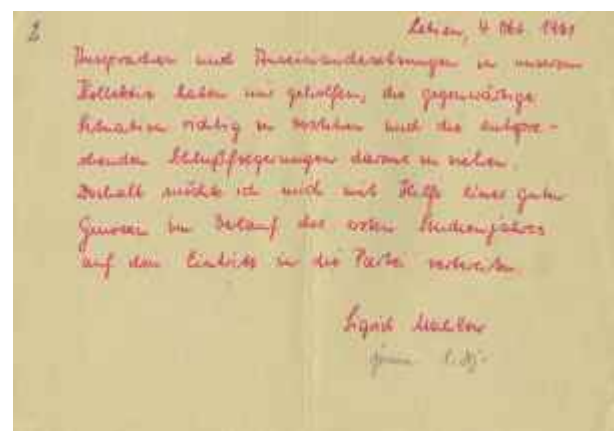 2
Lehien, 4. Okt. 1961
Aussprachen und Auseinandersetzungen in unserem
Kollektiv haben mir geholfen, die gegenwärtige
Situation richtig zu verstehen und die entspre-
chenden Schlußfolgerungen daraus zu ziehen.
Deshalb möchte ich mich mit Hilfe eines guten
Genossen im Verlauf des ersten Studienjahres
auf den Eintritt in die Partei vorbereiten.
Sigrid